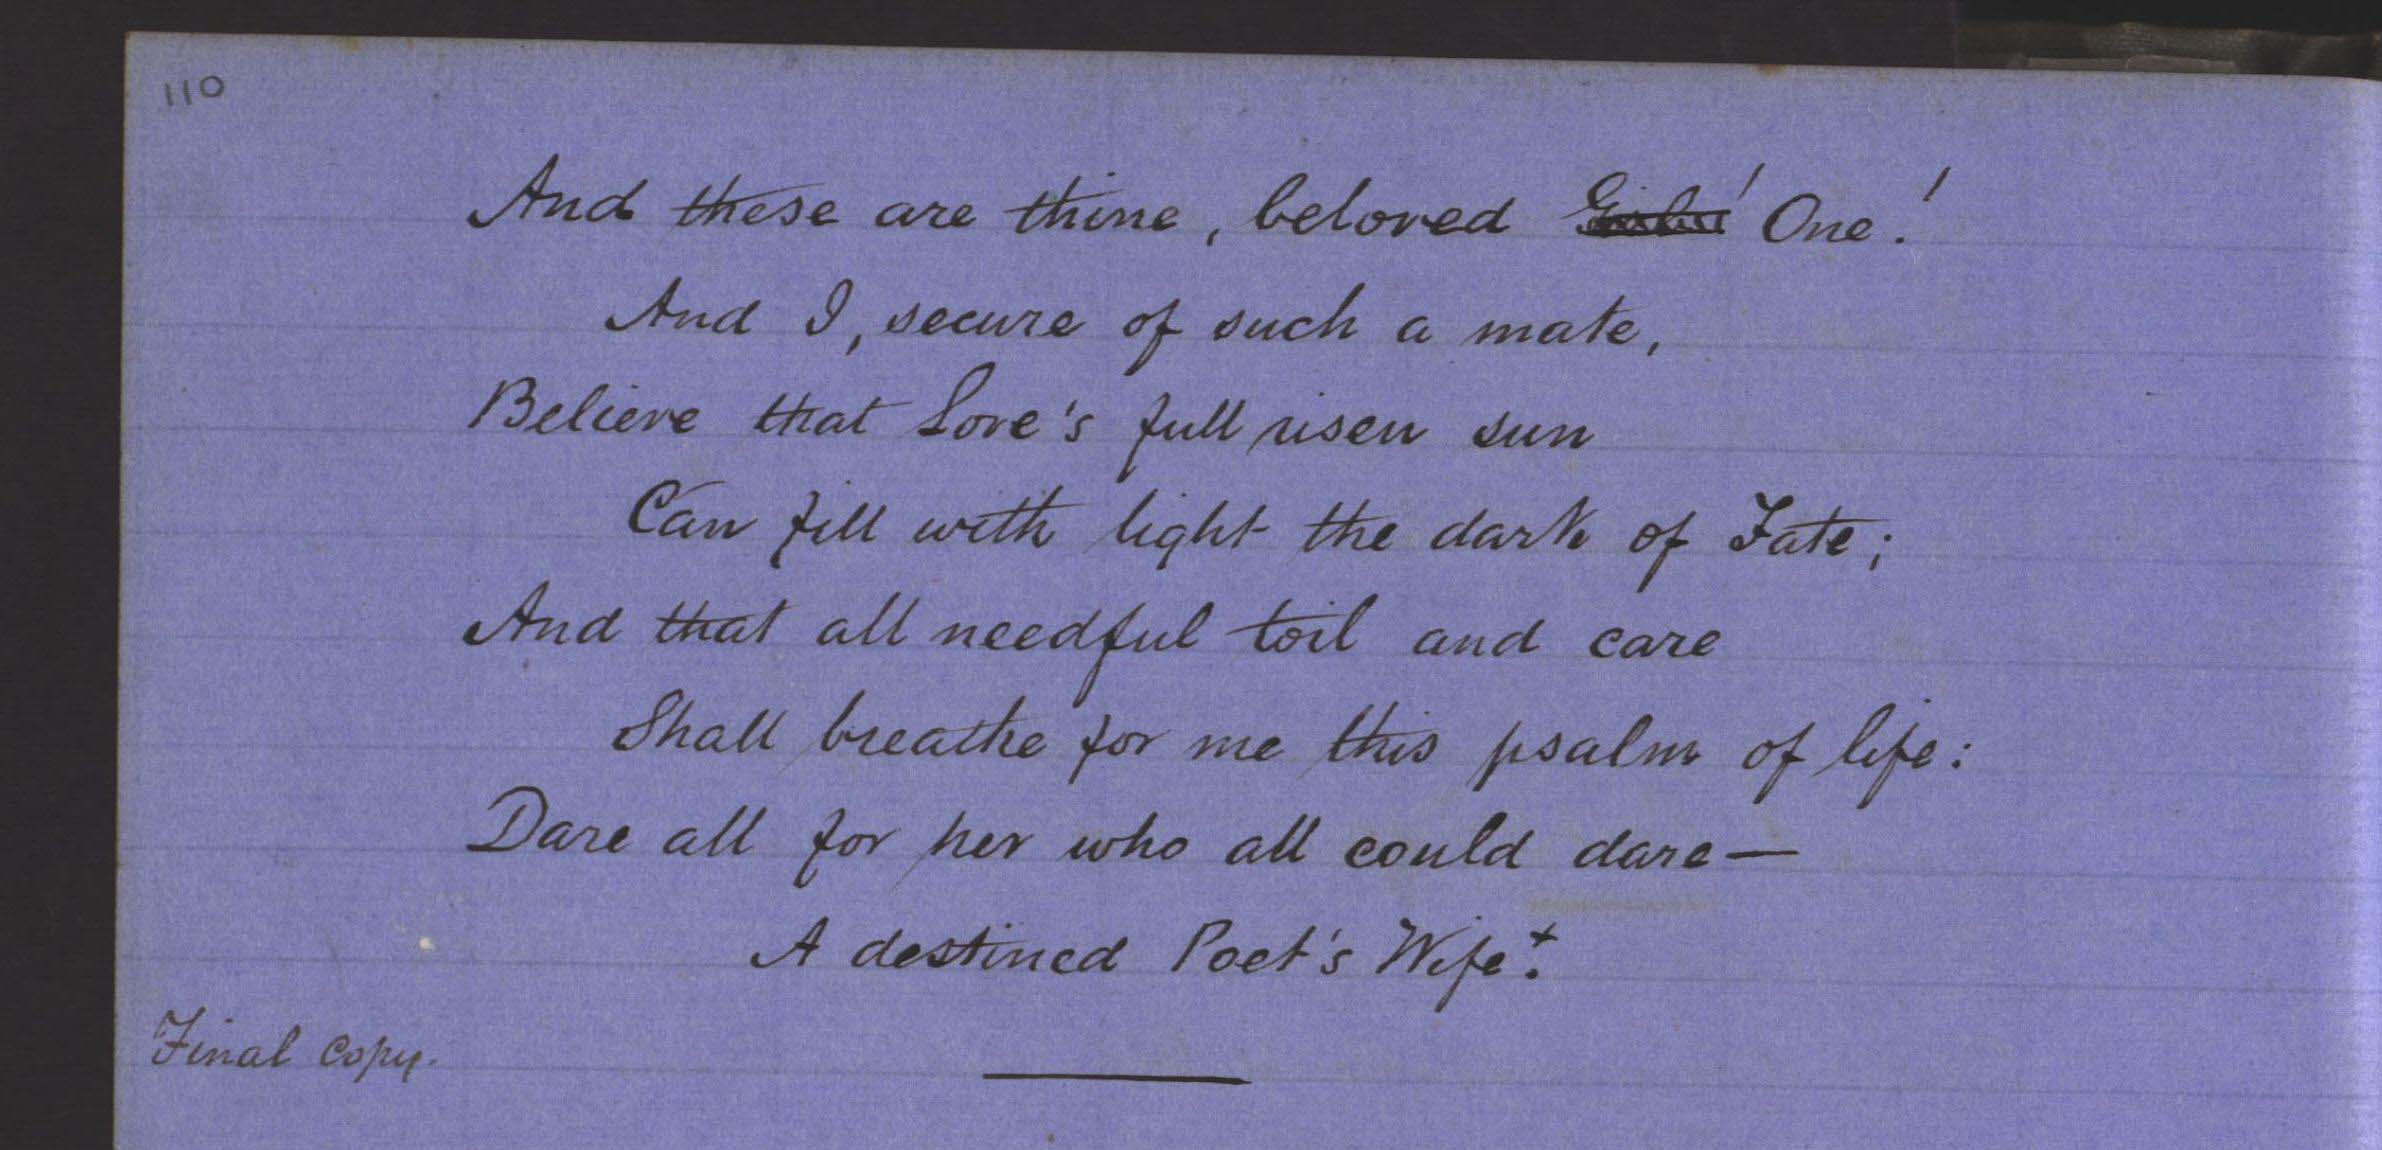 110
And these are thine, beloved One!
And I, secure of such a mate,
Believe that Love's full risen sun
Can fill with light the dark of Fate;
And that all needful toil and care
Shall breathe for me this psalm of life:
Dare all for her who all could dare—
A destined Poet's Wife+.
Final copy.